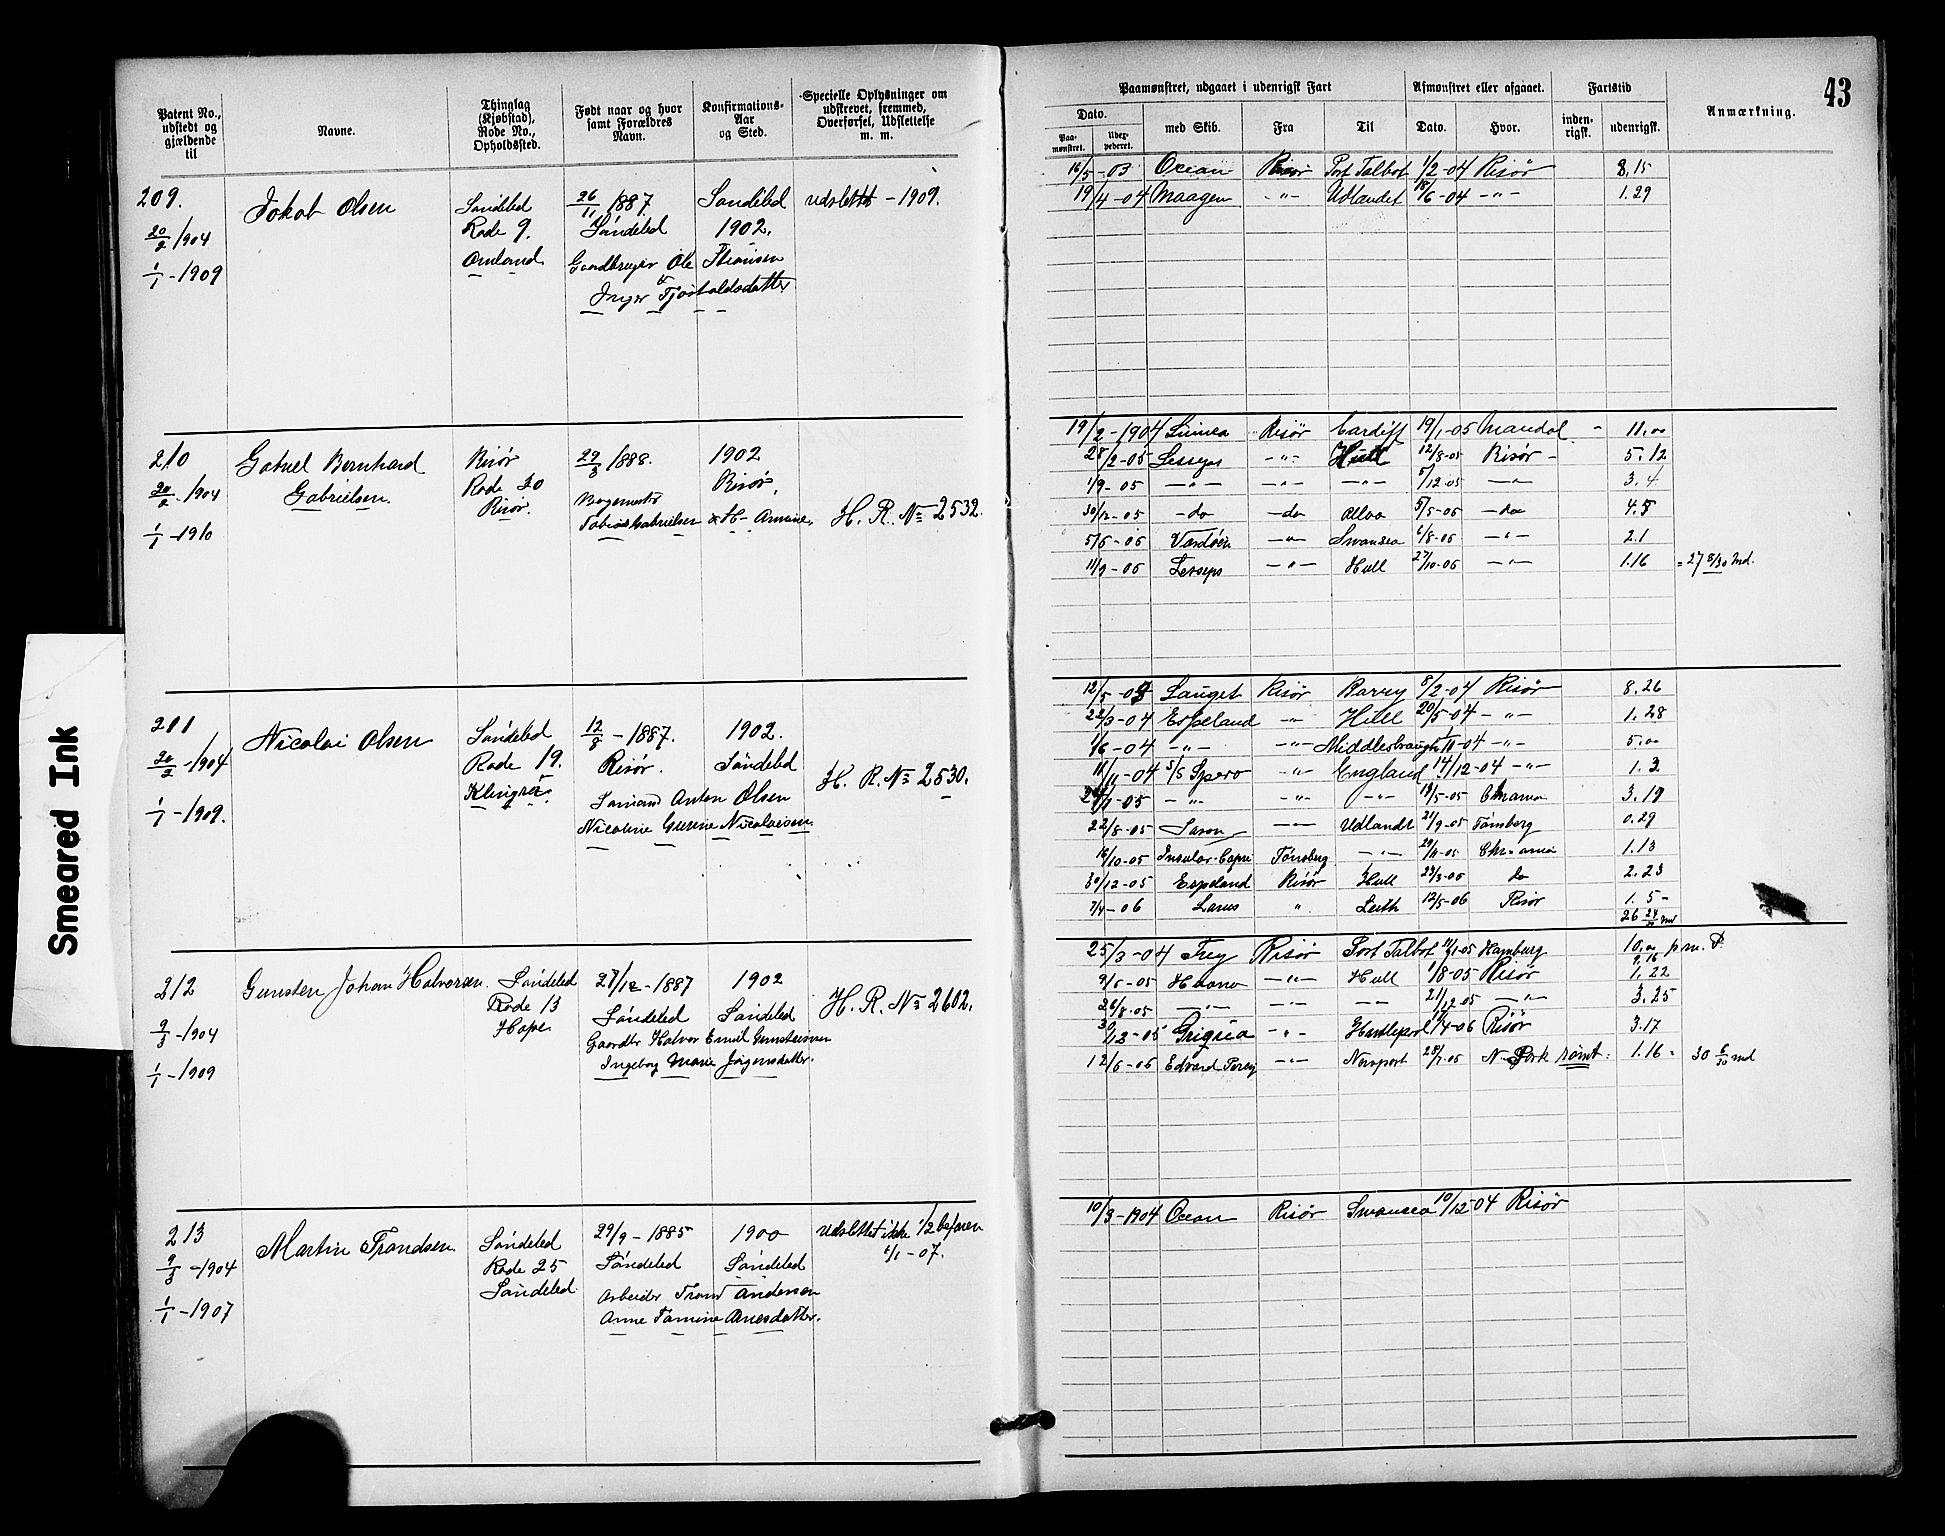 43
Smeared Ink
Patent No., udstedt og gjældende til
Navne.
Thinglag (Kjøbstad), Rode No., Opholdssted.
Født naar og hvor samt Forældres Navn.
Konfirmations-Aar og Sted.
Specielle Oplysninger om udskrevet, fremmed, Overførsel, Udslettelse m. m.
Paamønstret, udgaaet i udenrigsk Fart
Dato.
Paamønstret.
med Skib.
Fra
Til
Afmønstret eller afgaaet.
Dato.
Hvor.
Fartstid
inden-rigsk.
udenrigsk.
Anmærkning.
209.
20/2 1904
1/1 - 1909
Jakob Olsen
Søndeled
Rode 9.
Omland
26/11 1887
Søndeled
Gaardbruger Ole
Inger Tjostoldsdatter
Søndeled
1902.
udslettet - 1909.
16/5 - 03 Ocean Risør Port Talbot 1/2 - 04 Risør 8,15
19/4 - 04 Maagen -"- Udlandet 18/6 - 04 -"- 1.29
210
20/2 - 1904
1/1 - 1910
Gabriel Bernhard
Gabrielsen.
Risør
Rode 20
Risør.
29/3 1888.
Bagermester
Tobias Gabrielsen & H- Amine
1902
Risør,
H. R. No 2532.
19/2 - 1904 Risør Cardiff 19/1 - 05 Mandal - 11,00
28/2 - 05 Lesseps -"- Hull 12/8 - 05 Risør - 5.12
1/9 - 05 -"- -"- -"- 5/12 - 05 -"- 3.4
30/12 - 05 - do - do Alloa 5/5 - 06 - do 4.5
5/6 - 06 Vardøen -"- Swansea 6/8 - 06 -"- 2.1
11/9 - 06 Lesseps -"- Hull 27/10 - 06 -"- 1.16 = 27 8/30 Md.
211
20/2 - 1904
1/1 - 1909.
Nicolai Olsen
Søndeled
Rode 19.
12/8 - 1887.
Risør.
Sømand Anton Olsen
Nicoline Gurine Nicolaisen.
1902.
Søndeled
H. R. No 2530.
12/5 - 03 Risør Barry 8/2 - 04 Risør 8.26
22/3 - 04 Espeland -"- Hull 20/5 - 04 -"- 1.28
1/6 - 04 -"- -"- Middlesbrough 1/11 - 04 -"- 5.00
11/11 - 04 S/S Spero -"- England 14/12 - 04 -"- 1.3
-"- -"- -"- 19/5 - 05 Chrania 3.19
22/8 - 05 -"- Udlandt 21/9 - 05 Tønsberg 0.29
16/10 - 05 Insular-Capre Tønsberg -"- 29/11 - 05 Chr-ania 1.13
30/12 - 05 Espeland Risør Hull 23/3 - 06 do 2.23
7/4 - 06 Larus " Leith 12/5 - 06 Risør 1.5 -
26 24/30 md
212
9/3 - 1904
1/1 - 1909
Gunsten Johan Halvorsen.
Søndeled
Rode 13
Hope
27/12 - 1887
Søndeled
Gaardbr Halvor Emil Gunsteinsen
Ingeborg Marie Jørgensdatter.
1902
Søndeled
H. R. No 2602.
25/3 - 04 Frey Risør Port Talbot 11/1 - 05 Hamburg 10,00
9.16
9/6 - 05 -"- Hull 1/8 - 05 Risør 1.22
26/8 - 05 -"- -"- -"- 21/12 - 05 -"- 3.25
30/12 - 05 Griqua -"- Hartlepool 4 - 06 Risør 3.17
12/6 - 06 Edvard Percy -"- Newport 28/7 - 06 N-York rømt. 1.16 - 30 6/30 md
213
9/3 - 1904
1/1 - 1907
Martin Trondsen.
Søndeled
Rode 25
Søndeled
29/9 - 1885
Søndeled
Arbeider Trond Andersen
Anne Tomine Anesdatter.
1900
Søndeled
Udslettet ikke 1/2 befaren
1/1 - 07.
10/3 - 1904 Ocean Risør Swansea 10/12 - 04 Risør